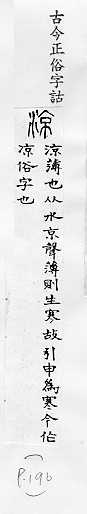 古今正俗字詁
涼
涼薄也从水京聲薄則生寒故引申為寒今作
凉俗字也
P.196